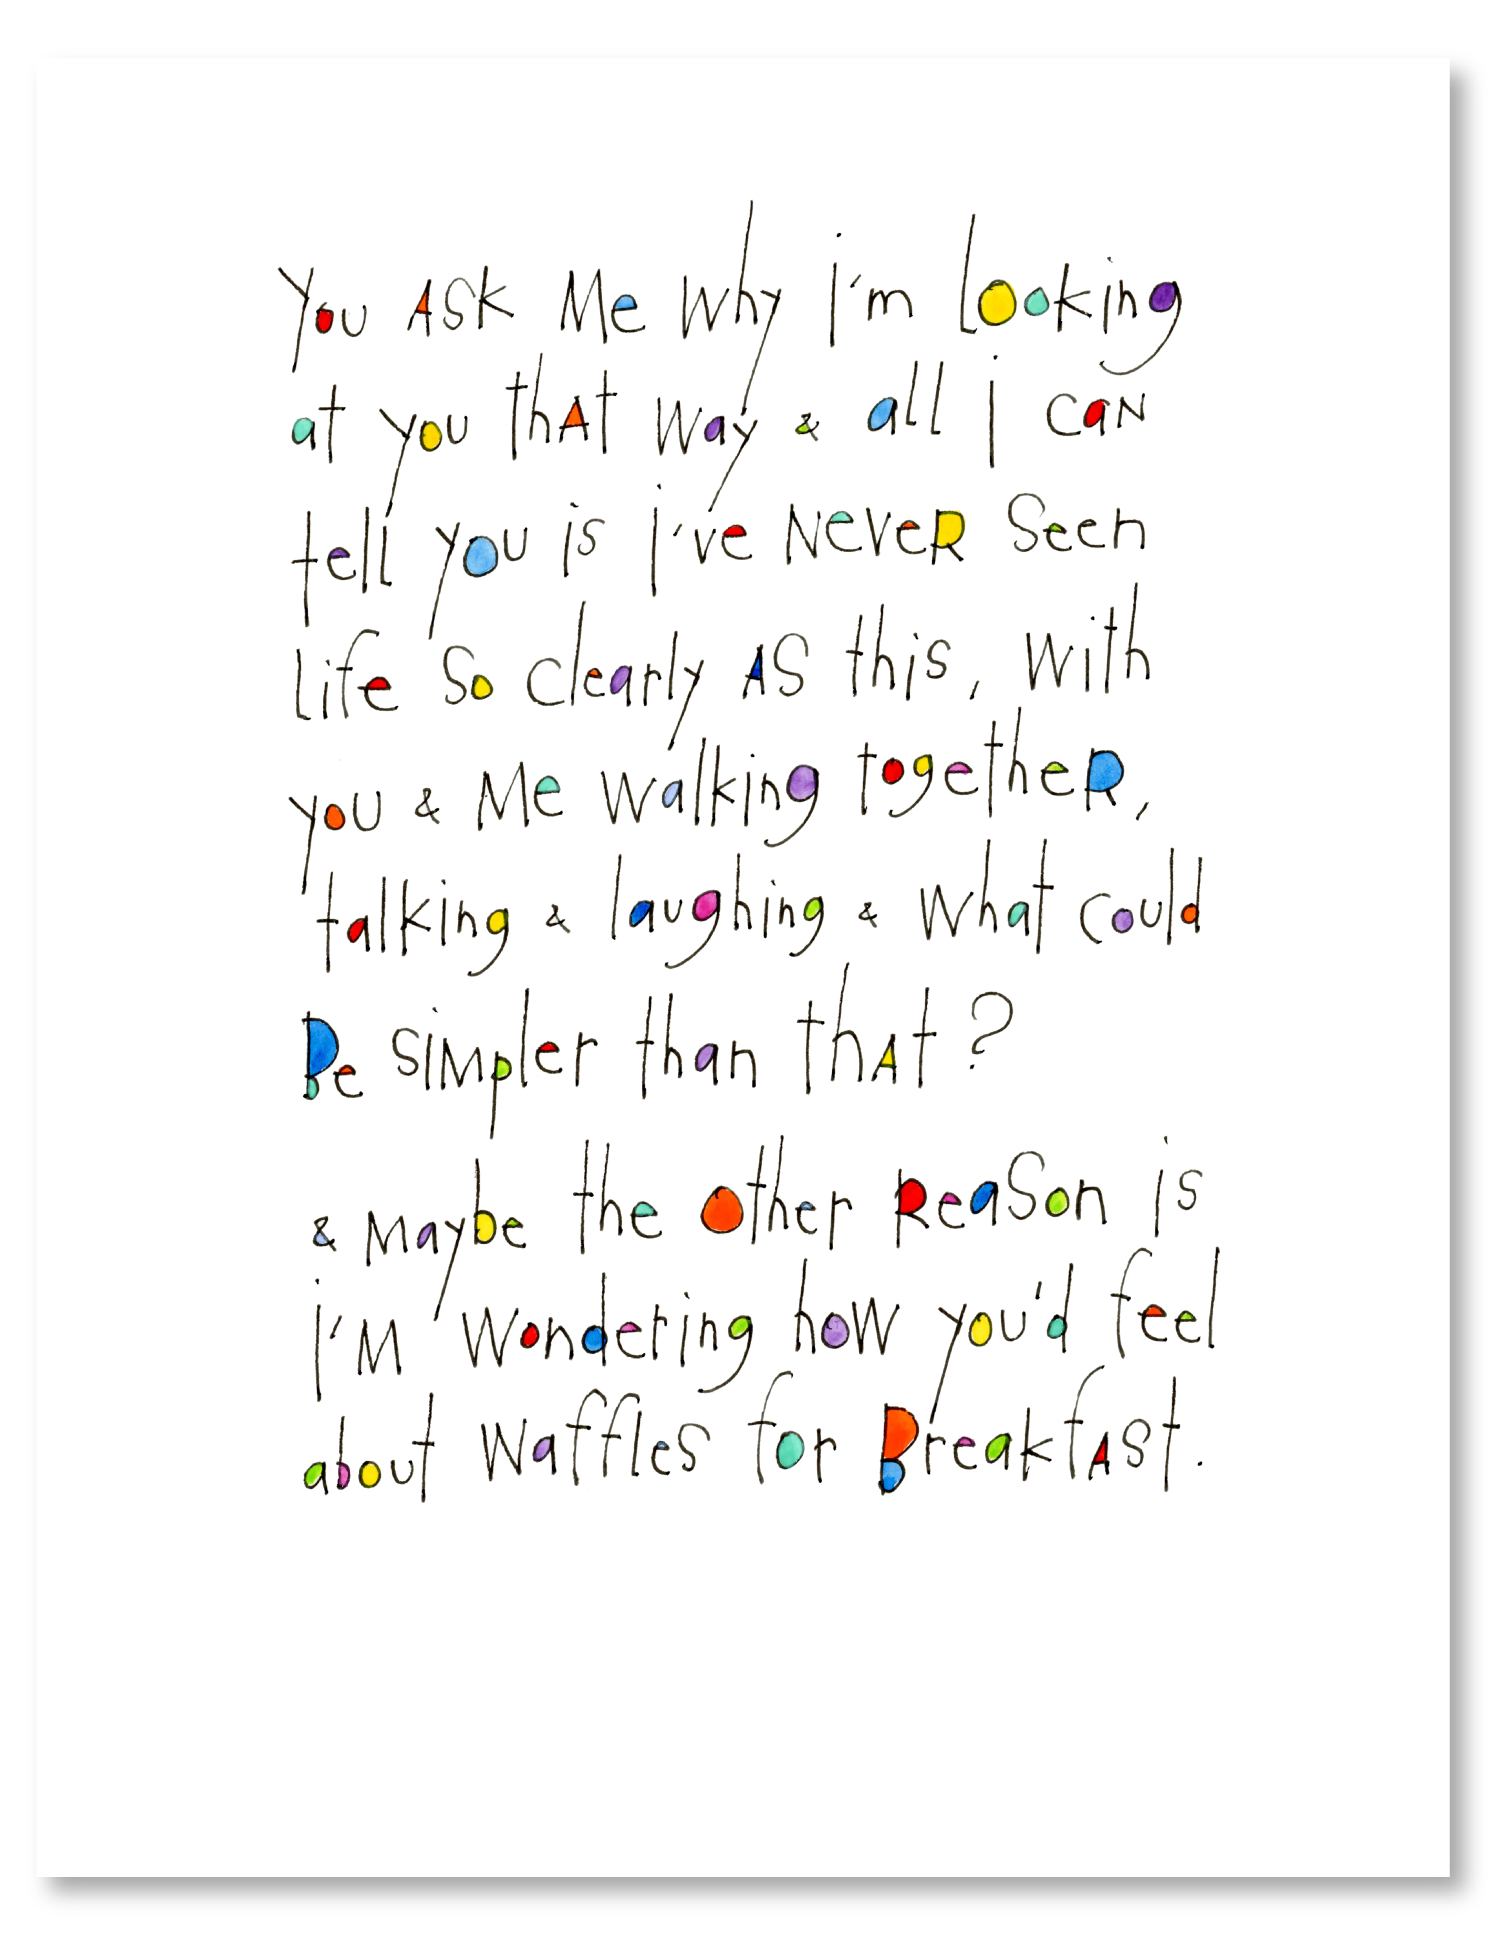 You ASk Me Why i'm looking
at you thAt way & all i caN
tell you is i've NeveR Seen
life So clearly AS this, with
you & Me walking togetheR,
talking & laughing & what could
Be SiMpler than thAt?
& Maybe the other ReaSon is
i'M wondering how you'd feel
about waffleS for BreakfASt.